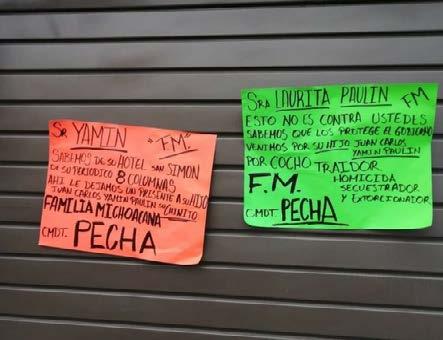 Sr YAMIN "FM."
SABEMOS DE SU HOTEL SAN SIMON
DE SU PERIODICO 8 COLUMNAS
AHI LE DEJAMOS UN PRESENTE A SU HIJO
JUAN CARLOS YAMIN PAULIN SU CHINITO
FAMILIA MICHOACANA
CMDT. PECHA
SRA LAURITA PAULIN FM
ESTO NO ES CONTRA USTEDES
SABEMOS QUE LOS PROTEGE EL GOBIERNO
VENIMOS POR SU HIJO JUAN CARLOS
YAMIN PAULIN
POR COCHO TRAIDOR
HOMICIDA
F.M. SECUESTRADOR
Y EXTORCIONADOR
CMDT. PECHA